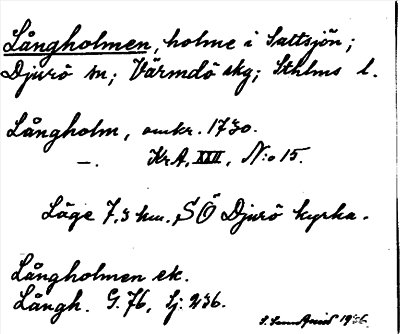 Långholmen, holme i Saltsjön;
Djurö sn; Värmdö skg; Sthlms l.
Långholm, omkr. 1730.
—. KrA, XXII, N:o 15.
Läge 7,3 km. SÖ Djurö kyrka.
Långholmen ek.
Långh. G. 76, Lj: 236.
1936